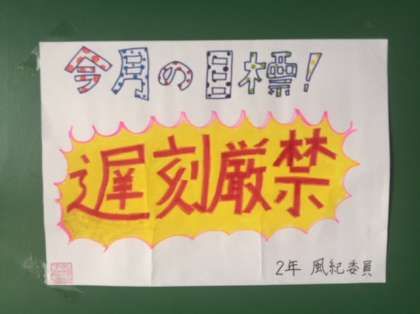 今月の目標!
遅刻厳禁
2年 風紀委員